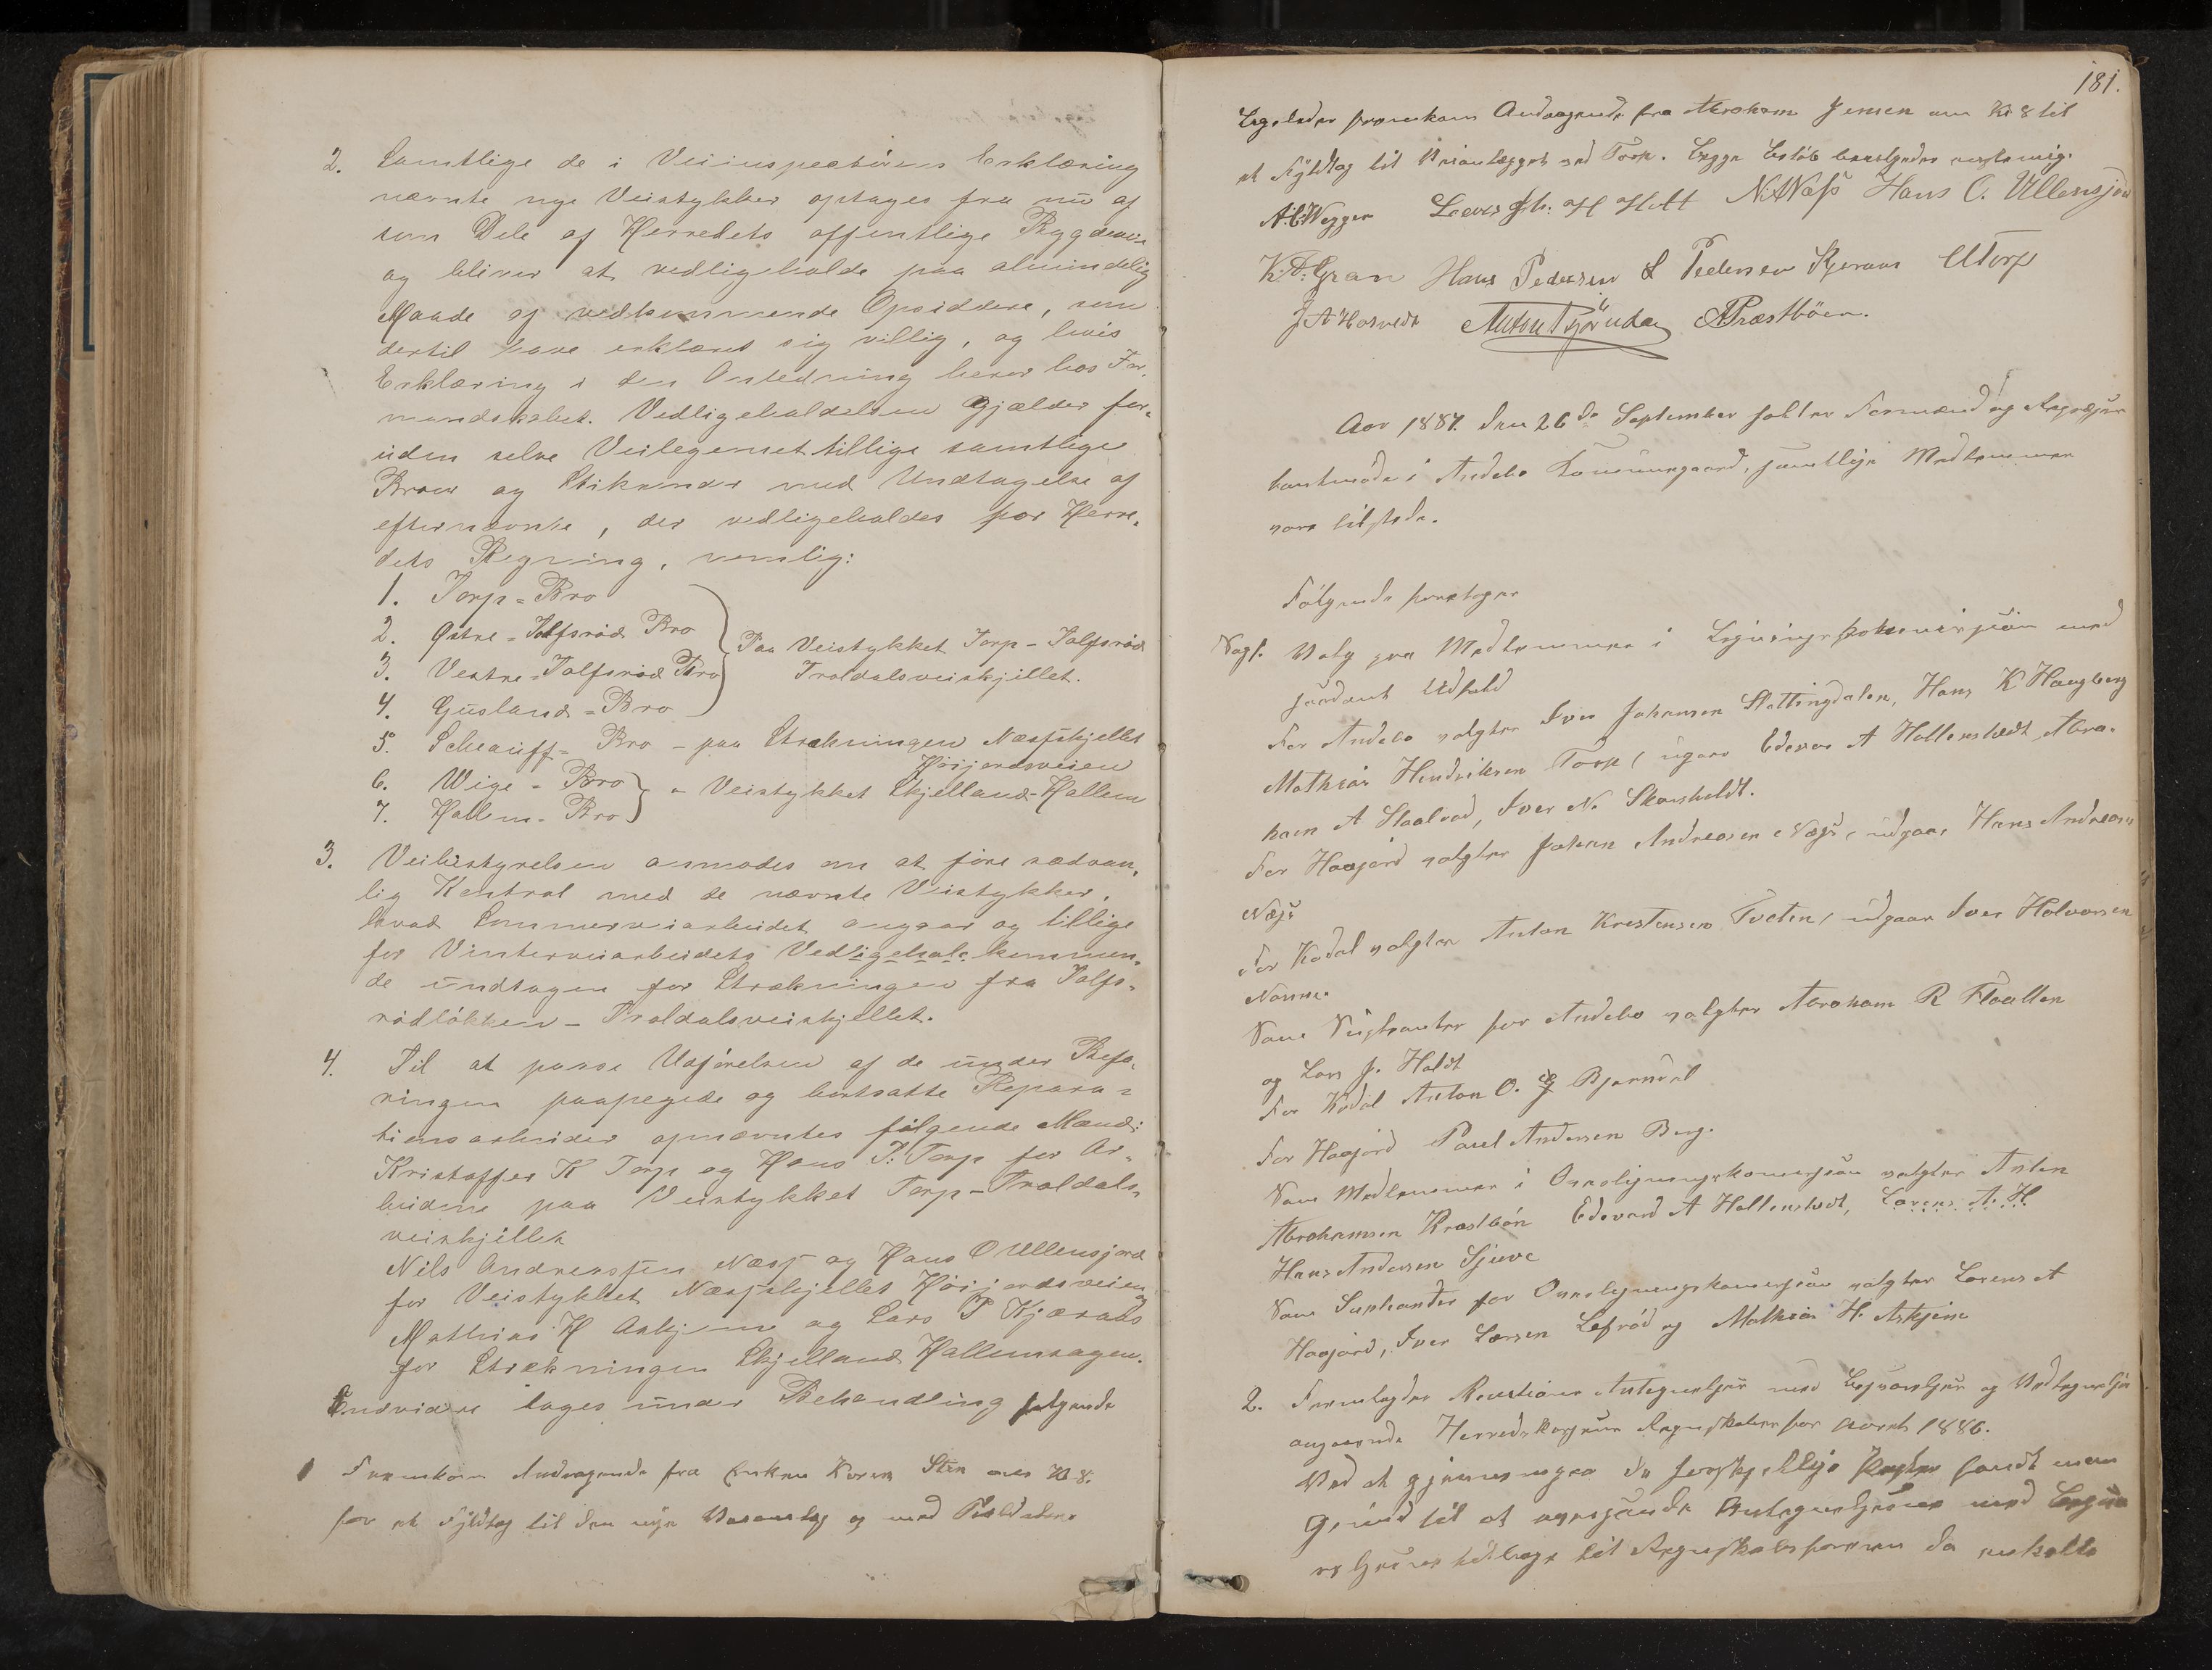 2. Samtlige de i Veiinspectørens Erklæring
nævnte nye Veistykker optages fra nu af
som Dele af Herredets offentlige Bygdeveie
og bliver at vedligeholde paa almindelig
Maade af vedkommende Opsiddere, som
dertil have erklæret sig villig, og hvis
Erklæring i den Anledning beror hos For-
mandskabet. Vedligeholdelsen gjælder for-
uden selve Veilegemet tillige samtlige
Broer og Stikrender med Undtagelse af
efternævnte, der vedligeholdes for Herre-
dets Regning, nemlig:
1. Torp-Bro
2. Østre-Tolfsrød Bro
Paa Veistykket Torp-Tolfsrød
3. Vestre-Tolfsrød Bro
Troldalsveiskjellet.
4. Gusland-Bro
5. Scheauff-Bro - paa Strækningen Næsskjellet
Høijordsveien
6. Wige-Bro
" Veistykket Skjelland-Hallem
7. Hallem-Bro
3. Veibestyrelsen anmodes om at føre sædvan-
lig Kontrol med de nævnte Veistykker,
hvad Sommerveiarbeidet angaar og tillige
for Vinterveiarbeidets Vedkommen-
de undtagen for Strækningen fra Tolfs-
rødløkken - Troldalsveiskjellet.
4. Til at passe Udførelsen af de under Befa-
ringen paapegede og bortsatte Repara-
tionsarbeider opnævntes følgende Mænd:
Kristoffer K Torp og Hans J. Torp for Ar-
beidene paa Veistykket Torp-Troldals-
veiskjellet
Nils Andreassen Næss og Hans O Ullensjord
for Veistykket Næsskjellet Høijordsveien og
Mathias H Askjem og Lars P Kjæraas
for Strækningen Skjelland Hallemsagen.
Endvidere toges under Behandling følgende
1 Fremkom Andragende fra Enken Karen Sten om Kr 8.
for et Fyldtag til den nye
181.
Ligeledes fremkom Andragende fra Abraham Jensen om Kr 8 til
et Fyldtag til Veianlægget ved Torp. Begge Beløb bevilgedes enstemig.
A.C. Wegger H Holt N A Næss Hans O. Ullensjord
K. D. Gran Hans Pedersen L Pedersen Kjeraas
J A Hasvedt A Præstbøen.
Aar 1887 den 26de September holdtes Formænd og Repræsen
tantmøde i Andebo Kommunegaard, samtlige Medlemmer
vare tilstede.
Følgende foretoges
Valg paa Medlemmer i Ligningskommissjon med
saadant Udfald
For Andebo valgtes Iver Johansen Slettingdalen, Hans K Haugberg
Mathias Hendriksen Torp, udgaar Edevar A Hallenstvedt, Abra-
ham A Staalrød, Iver N. Skarsholdt.
For Høijord valgtes Johan Andreasen Næss, udgaar Hans Andreasen
Næss
For Kodal valgtes Anton Kristensen Tveten, udgaar Iver Halvorsen
Nomme.
Som Supleanter for Andebo valgtes Abraham R Floatten
og Lars J. Holdt
For Kodal Anton O. Bjørndal
For Høijord Paul Andersen Berg.
Som Medlemmer i Overligningskommissjon valgtes Anton
Abrahamsen Præstbøn Edevard A Hallenstvedt, Lorens A. H
Hans Andersen Sjuve
Som Suppleanter for Overligningskommissjon valgtes Lorens A
Høijord, Iver Larsen Lefsrød og Mathias H. Askjem
2. Fremlagdes Revisions Antegnelser med Besvarelser og
angaaende Herredskassens Regnskaber for Aaret 1886.
Ved at gjennemgaa de forskjellige Poster fandt man
Grund til at oversende Antegnelserne med
tilbage til Regnskabsføreren da enkelte